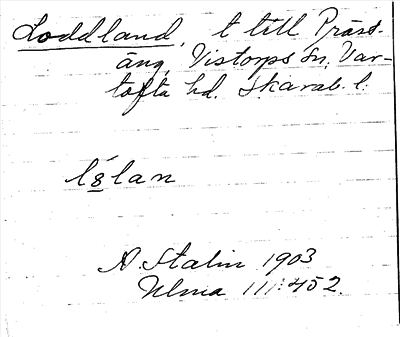 Loddland, t till Präst-
äng, Vistorps Sn, Var-
tofta hd. Skarab. l.
A. Stalin 1903
Ulma 111:452.